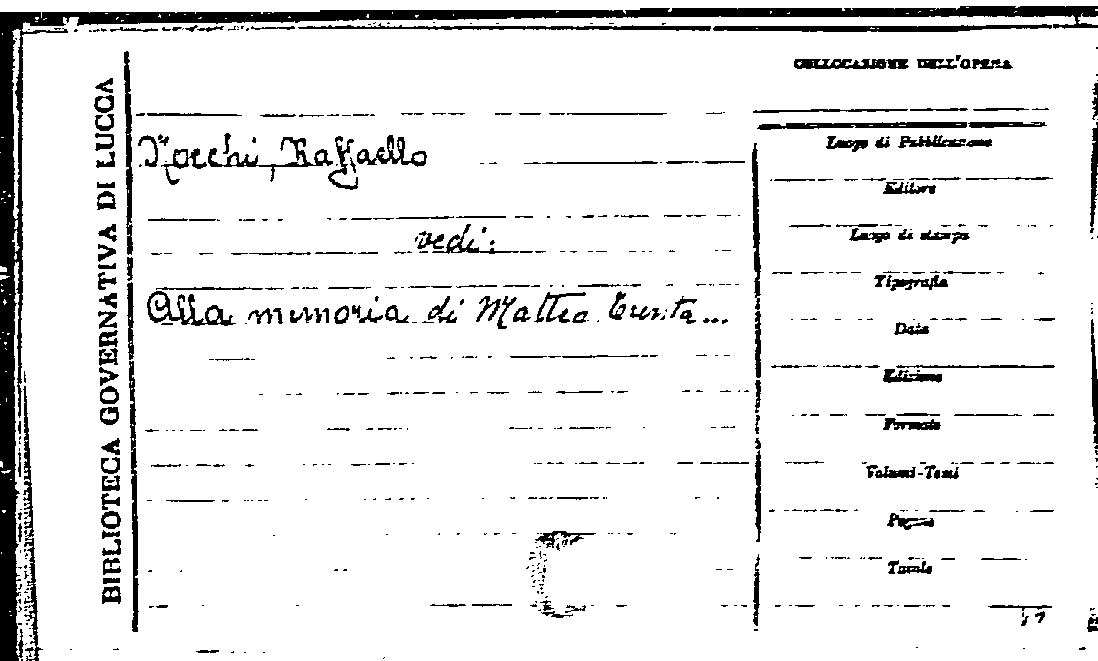 BIBLIOTECA GOVERNATIVA DI LUCCA
COLLOCAZIONE DELL'OPERA
Nocchi, Raffaello
vedi:
Alla memoria di Matteo Trenta...
Luogo di Pubblicazione
Editore
Luogo di stampa
Tipografia
Data
Edizione
Formato
Volumi-Tomi
Pagine
Tavole